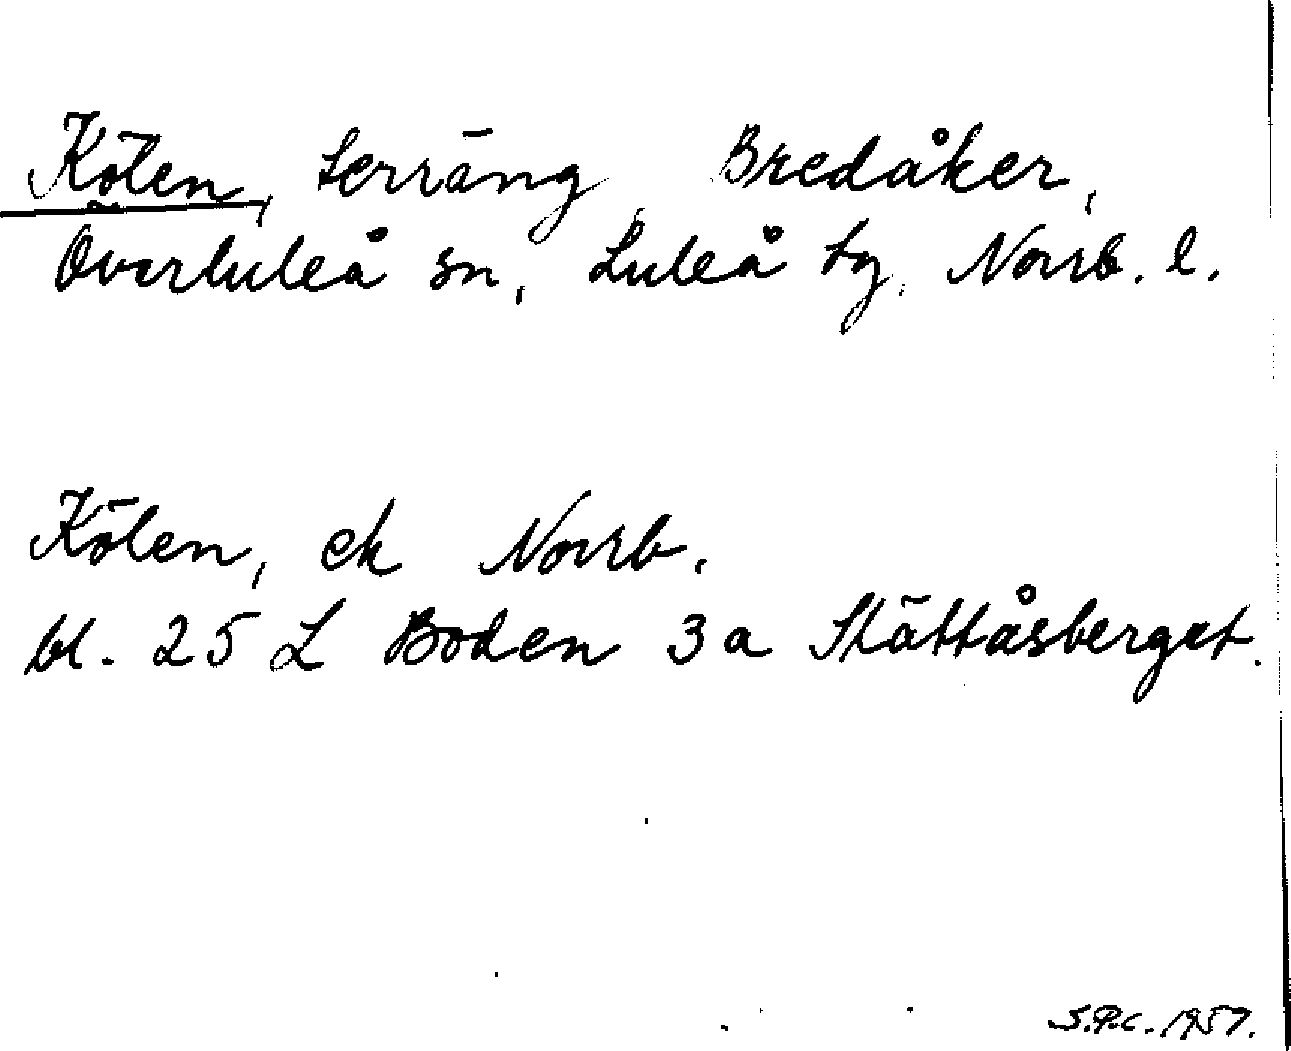 Kölen, terräng, Bredåker,
Överluleå sn, Luleå tg, Norrb. l.
Kölen, ek Norrb.
bl. 25 L Boden 3a Skättåsberget.
S.P.C. 1957.